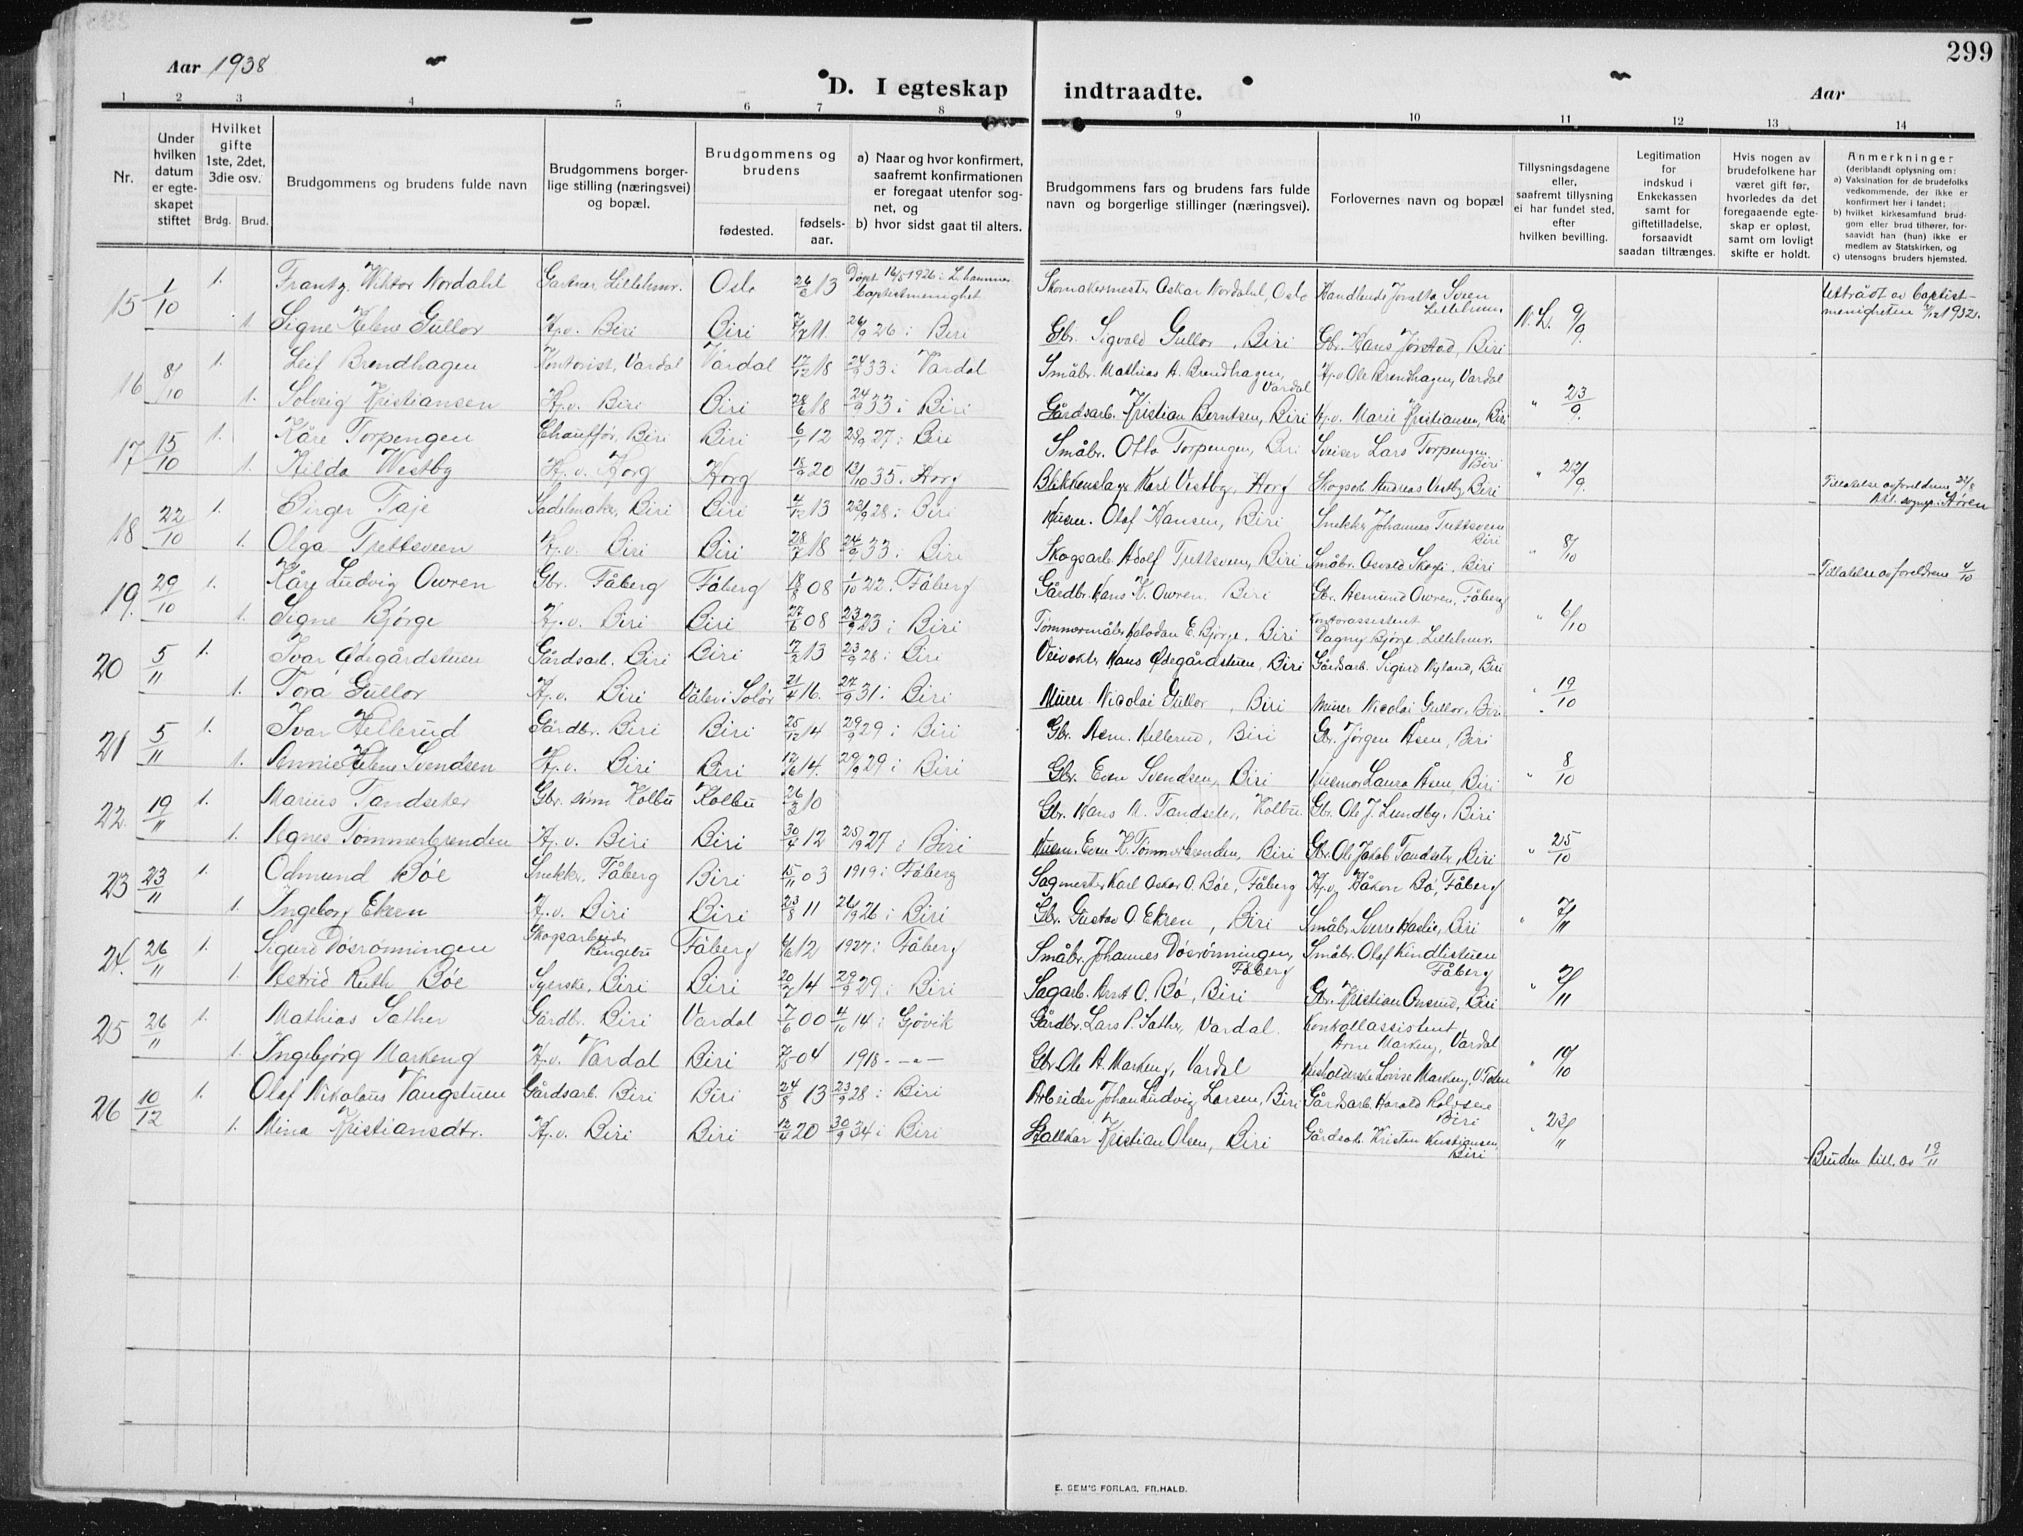 299
Aar 1938
D. I egteskap indtraadte.
Aar
1 2 3 4 5 6 7 8 9 10 11 12 13 14
Nr.
Under hvilken datum er egteskapet stiftet
Hvilket gifte 1ste, 2det, 3die osv.
Brdg. Brud.
Brudgommens og brudens fulde navn
Brudgommens borgerlige stilling (næringsvei) og bopæl.
Brudgommens og brudens
fødested.
fødselsaar.
a) Naar og hvor konfirmert, saafremt konfirmationen er foregaat utenfor sognet, og
b) hvor sidst gaat til alters.
Brudgommens fars og brudens fars fulde navn og borgerlige stillinger (næringsvei).
Forlovernes navn og bopæl
Tillysningsdagene eller, saafremt tillysning ei har fundet sted, efter hvilken bevilling.
Legitimation for indskud i Enkekassen samt for giftetilladelse, forsaavidt saadan tiltrænges.
Hvis nogen av brudefolkene har været gift før, hvorledes da det foregaaende egteskap er opløst, samt om lovligt skifte er holdt.
Anmerkninger
(deriblandt oplysning om:
a) Vaksination for de brudefolks vedkommende, der ikke er konfirmert her i landet;
b) hvilket kirkesamfund brudgom eller brud tilhører, forsaavidt han (hun) ikke er medlem av Statskirken, og
c) utensogns bruders hjemsted.
15 1/10 1. Frantz Viktor Nordahl Gartner, Lillehmr. Oslo 26/6 13 Døpt 16/5 1926 i L.hammer baptistmenighet Skomakermester Oskar Nordahl, Oslo Lillehmr. Uttrådt av baptistmenigheten 1932.
1. Signe Helene Gullor H.v. Biri Biri 7/7 11. 26/9 26 i Biri Gbr. Sigvald Gullor, Biri Gbr. Hans Jørstad, Biri N.L. 9/9.
16 8/10 1. Leif Brendhagen Kontorist, Vardal Vardal 17/12 18 24/9 33 i Vardal Småbr. Mathias A. Brendhagen, Vardal H.v. Ole Brendhagen, Vardal
1. Solveig Kristiansen H.v. Biri Biri 28/6 18 24/9 33 i Biri Gårdsarb. Kristian Berntsen, Biri H.v. Marie Kristiansen, Biri " 23/9.
17 15/10 1. Kåre Torpengen Chauffør, Biri Biri 6/1 12 28/9 27 i Biri Småbr. Otto Torpengen, Biri Sveiser Lars Torpengen, Biri
1. Hilda Westby H.v. Horg Horg 18/9 20 13/10 35. Horg Blikkenslager Karl Vestby, Horg Skogsarb. Andreas Vestby, Biri " 22/9. Tillatelse av foreldrene 24/8 Støren
18 22/10 1. Birger Taje Sadelmaker, Biri Biri 4/12 13 23/9 28 i Biri Husm. Olaf Hansen, Biri Snekker Johannes Trettsveen Biri
1. Olga Trettsveen H.v. Biri Biri 28/7 18 24/9 33 i Biri Skogsarb. Adolf Trettsveen, Biri Småbr. Osvald Biri " 8/10 Tillatelse av foreldrene 4/10
19. 29/10 1. Kåre Ludvig Owren Gbr. Fåberg Fåberg 18/8 08 1/10 22. Fåberg Gårdbr. Hans K. Owren, Biri Gbr. Asmund Owren, Fåberg
1. Signe Bjørge H.v. Biri Biri 27/6 08 23/9 23 i Biri Tømmermåler Halvdan E. Bjørge, Biri Kontorassistent Dagny Bjørge, Lillehmr. " 6/10
20 5/11 1. Ivar Ødegårdstuen Gårdsarb. Biri Biri 7/2 13 23/9 28 i Biri Veivokter Hans Ødegårdstuen, Biri Gårdsarb. Sigurd Nyland, Biri
1. Tora Gullor H.v. Biri Våler i Solør 21/4 16. 27/9 31 i Biri Murer Nicolai Gullor, Biri Murer Nicolai Gullor, Biri " 19/10
21 5/11 1. Ivar Hellerud Gårdbr. Biri Biri 25/12 14 29/9 29 i Biri Gbr. Asm. Hellerud, Biri Gbr. Jørgen Åsen, Biri
1. Annie Helene Svendsen H.v. Biri Biri 14. 29/9 29 i Biri Gbr. Even Svendsen, Biri Husmor Laura Åsen, Biri " 8/10
22. 19/11 1. Marius Tandseter Gbr. sønn Kolbu Kolbu 26/3 10 Gbr. Hans M. Tandseter, Kolbu. Gbr. Ole J. Lundby, Biri
1. Agnes Tømmerbrenden H.v. Biri Biri 30/4 12 25/9 27 i Biri Husm. Even K. Tømmerbrenden, Biri Gbr. Ole Jakob Tandseter, Biri " 25/10
23 23/11 1. Odmund Bøe Snekker, Fåberg Biri 15/11 03 1919 i Fåberg Sagmester Karl Oskar O. Bøe, Fåberg H.v. Håkon Bø, Fåberg
1. Ingeborg Ekern H.v. Biri Biri 23/8 11 26/9 26 i Biri Gbr. Gustav O. Ekren, Biri Småbr. Sverre Haslie, Biri " 7/11
24. 26/11 1. Sigurd Døsrønningen Skogsarbeider Ringebu Fåberg 12 1927 i Fåberg Småbr. Johannes Døsrønningen, Fåberg Småbr. Olaf Kindlistuen Fåberg
1. Astrid Ruth Bøe Syerske, Biri Biri 14 29/9 29 i Biri Sagarb. Arnt O. Bø, Biri Gbr. Kristian Onsrud, Biri " 2/11
25 26/11 1. Mathias Sather Gårdbr. Biri Vardal 7/6 00 4/10 14 i Gjøvik Gårdbr. Lars P. Sather, Vardal. Kontrollassistent Arne Markeng, Vardal
1. Ingebjørg Markeng H.v. Vardal Biri 7/5 04 1918 - - - Gbr. Ole A. Markeng, Vardal Husholderske Lovise Markeng, V. Toten " 19/10
26 10/12 1. Olaf Nikolaus Vangstuen Gårdsarb. Biri Biri 24/8 13 23/9 28 i Biri Arbeider Johan Ludvig Larsen, Biri Gårdsarb. Harald Biri
1. Mina Kristiansdtr. H.v. Biri Biri 12/4 20 30/9 34 i Biri Stallkar Kristian Olsen, Biri Gårdsarb. Kristen Kristiansen, Biri " 23/11 Bruden till. av 19/11
E. SEM'S FORLAG, FR.HALD.